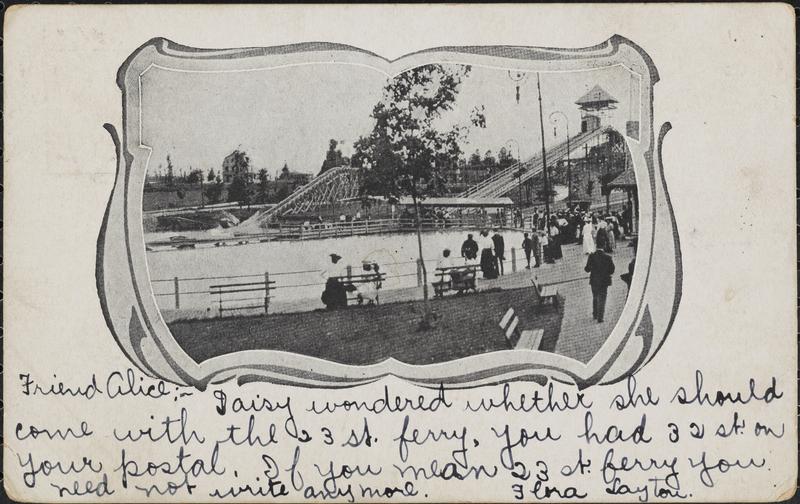 Friend Alice;- Daisy wondered whether she should
come with the 23 st. ferry, you had 32 st. on
your postal. If you mean 23 st. ferry you
need not write anymore. Flora Layton.